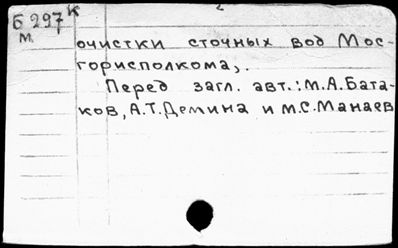 Б 297 К
М.
очистки сточных вод Мос-
горисполкома,.
Перед загл. авт.: М.А.Бата-
ков, А.Т.Демина и М.С.Манаев